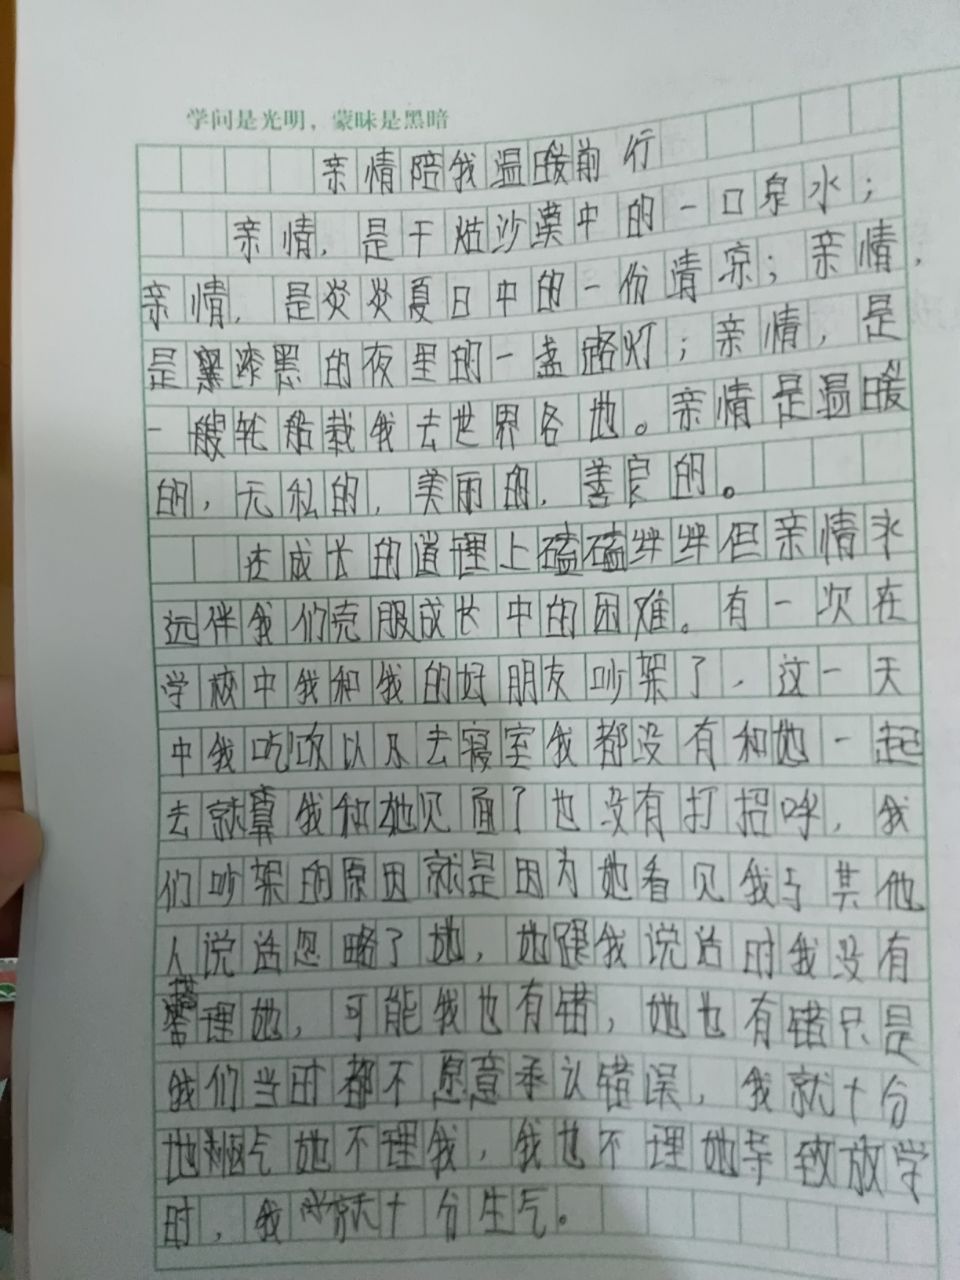 学问是光明，蒙昧是黑暗
亲情陪我温暖前行
亲情，是干燥沙漠中的一口泉水；
亲情，是炎炎夏日中的一份清凉；亲情，
是漆黑的夜里的一盏路灯；亲情，是
一艘轮船载我去世界各地。亲情是温暖
的，无私的，美丽的，善良的。
在成长的道理上磕磕绊绊但亲情永
远伴我们克服成长中的困难。有一次在
学校中我和我的好朋友吵架了，这一天
中我吃饭以及去寝室我都没有和她一起
去就算我和她见面了也没有打招呼，我
们吵架的原因就是因为她看见我与其他
人说话忽略了她，她跟我说话时我没有
搭理她，可能我也有错，她也有错只是
我们当时都不愿意承认错误，我就十分
地气她不理我，我也不理她导致放学
时，我就十分生气。